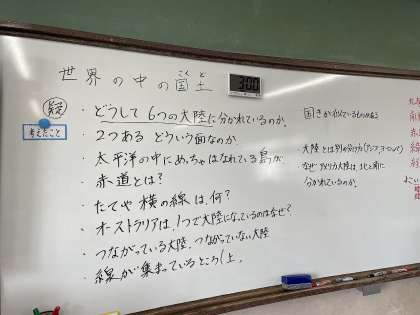 世界の中の国土
こく ど
3:00
疑
考えたこと
・どうして6つの大陸に分かれているのか。
・2つある どういう面なのか
・太平洋の中にめっちゃはなれている島が
・赤道とは?
・たてや横の線は、何?
・オーストラリアは、1つで大陸になっているのはなぜ?
・つながっている大陸、つながっていない大陸
・線が集まっているところ(上。
国
大陸とは別の分け方(アジア、ヨーロッパ)
なぜ アメリカ大陸は、北と南に
分かれているのか。